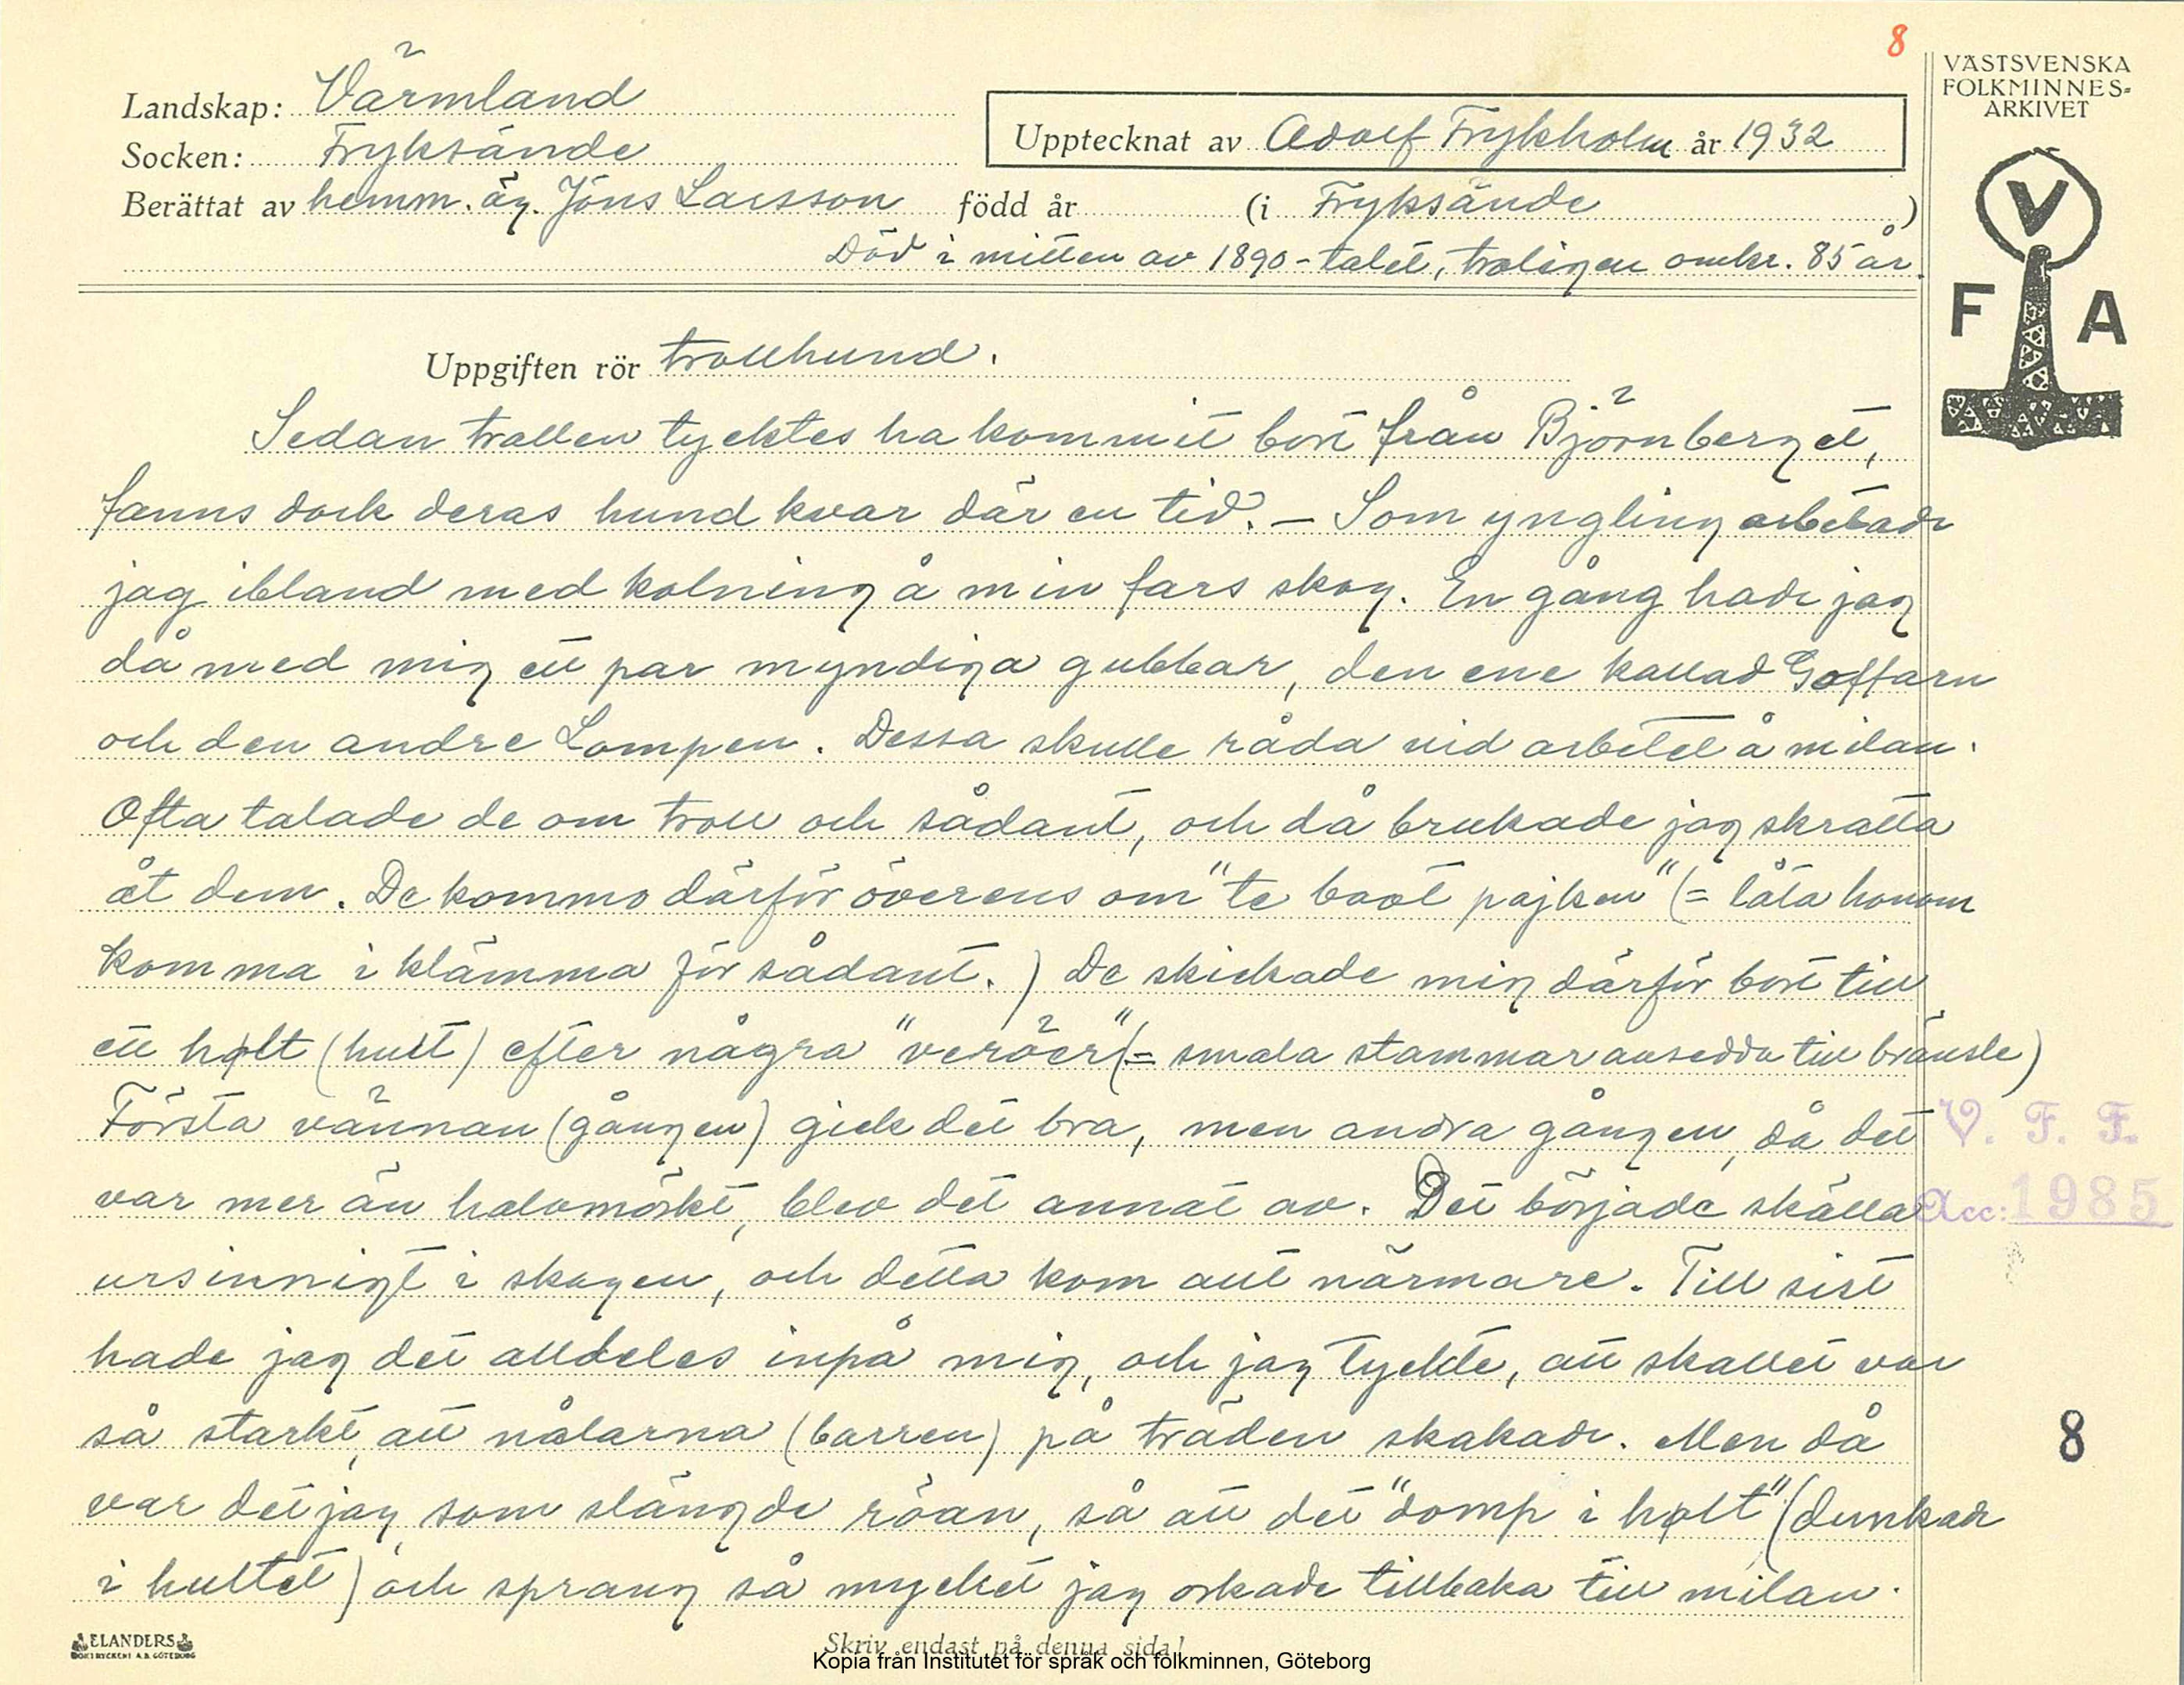 8
VÄSTSVENSKA
FOLKMINNES-
ARKIVET
Landskap: Värmland
Socken: Fryksände
Upptecknat av Adolf Frykholm år 1932
Berättat av hemm. äg. Jöns Larsson född år (i Fryksände)
Död i mitten av 1890-talet, troligen omkr. 85 år.
V
F A
Uppgiften rör trollhund.
Sedan trollen tycktes ha kommit bort från Björnberget,
fanns dock deras hund kvar där en tid. – Som yngling arbetade
jag ibland med kolning å min fars skog. En gång hade jag
då med mig ett par myndiga gubbar, den ene kallad Goffarn
och den andre Lompen. Dessa skulle råda vid arbetet å milan.
Ofta talade de om troll och sådant, och då brukade jag skratta
åt dem. De kommo därför överens om "te baot pajken" (= låta honom
komma i klämma för sådant.) De skickade mig därför bort till
ett hølt (hult) efter några "veröer" (= smala stammar ansedda till bränsle)
Första vännan (gången) gick det bra, men andra gången, då det
var mer än halvmörkt, blev det annat av. Det började skälla
ursinnigt i skogen, och detta kom allt närmare. Till sist
hade jag det alldeles inpå mig, och jag tyckte, att skallet var
så starkt, att nålarna (barren) på träden skakade. Men då
var det jag, som slängde röan, så att det "domp i hølt" (dunkade
i hultet) och sprang så mycket jag orkade tillbaka till milan.
V. F. F.
Acc: 1985
8
ELANDERS
BOKTRYCKERI A.B. GÖTEBORG
Skriv endast på denna sida!
Kopia från Institutet för språk och folkminnen, Göteborg